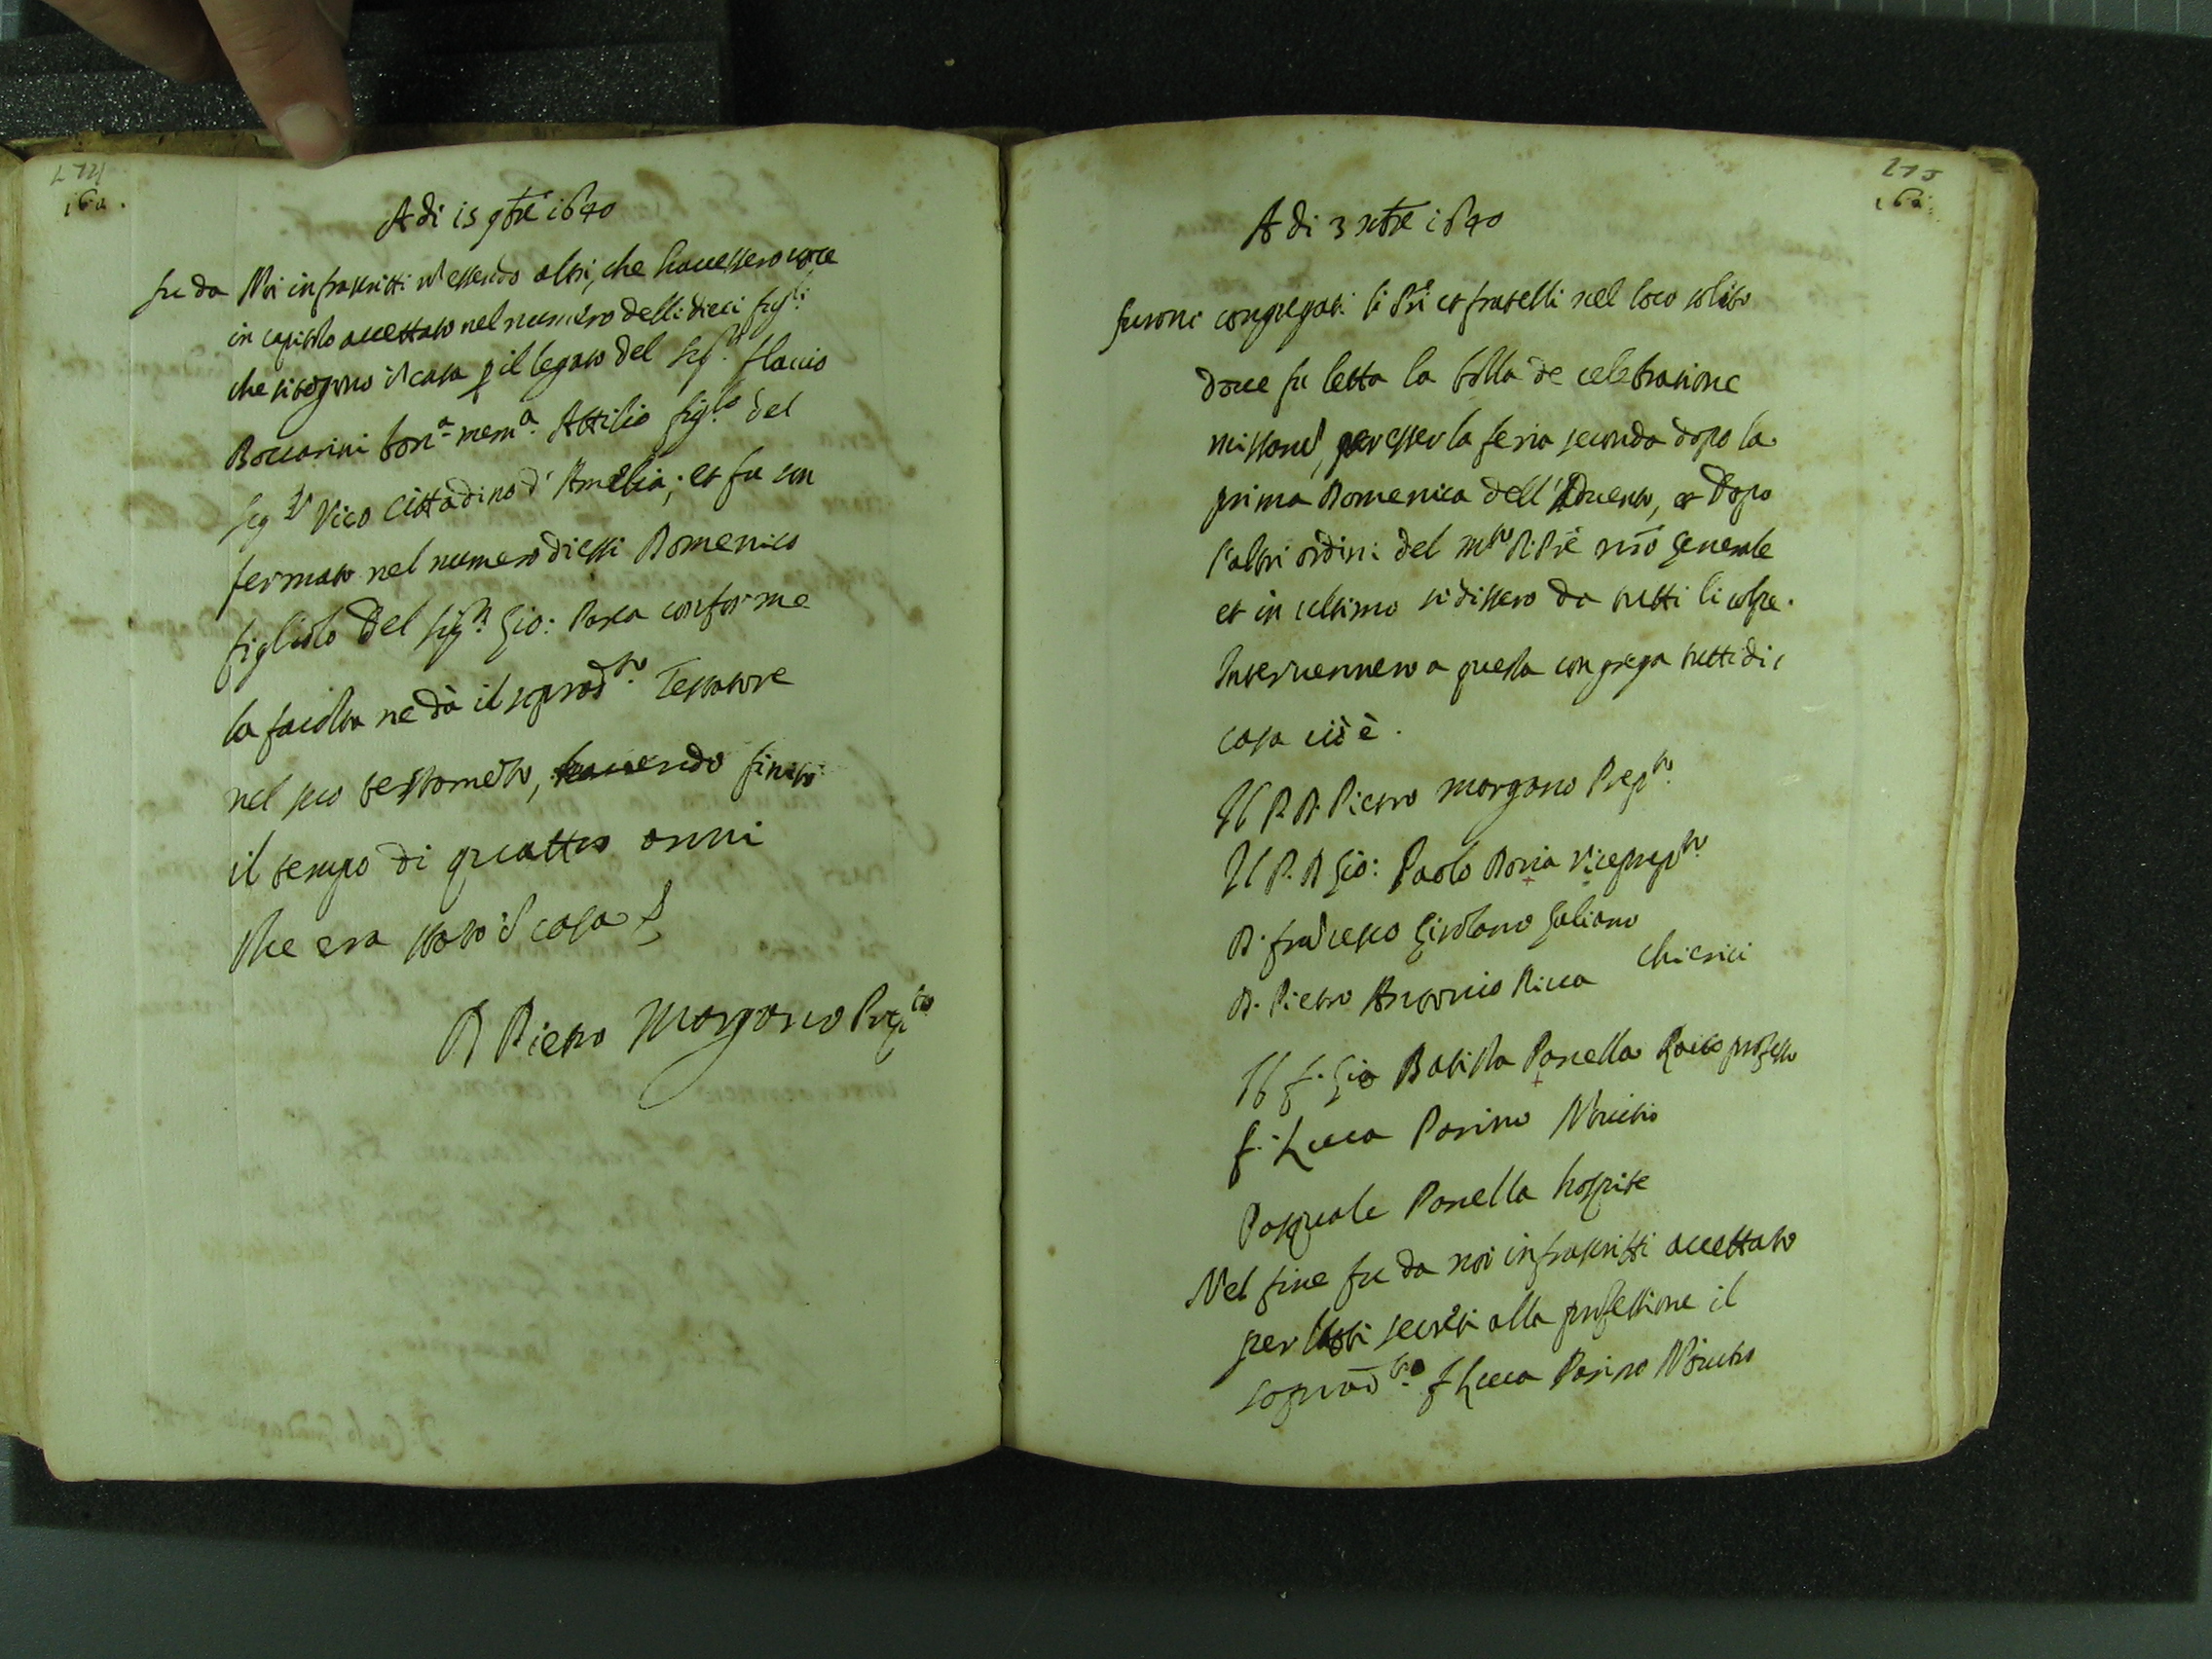 274
Adi 15 9bre 1640
fu da Noi infrascritti nō essendo altri, che havessero voce
in capitolo accettato nel numero delli dieci figli
che si tegono ī casa p il legato del Sigr flavio
Boccarini bona mema Attilio figlo del
Sigr Vico Cittadino d'Amelia; et fu con
fermato nel numero di essi Domenico
figliolo del sigr Gio: Pasca conforme
la facolta ne dà il sopradto Testatore
nel suo testamēto, havendo finito
il tempo di quattro anni
che era stato ī casa
D Pietro Morgano Prepto
275
A di 3 xbre 1640
furono congregati li Pri et fratelli nel loco solito
dove fu letta la bolla de celebratione
missarū, per esser la feria seconda dopo la
prima Domenica dell'Advento, et dopo
l'altri ordini del mto R. Pre nro Generale
et in ultimo si dissero da tutti li colpe.
Intervennero a questa congrega tutti di
casa cioè.
Il P. D. Pietro Morgano Prepto
Il P. D Gio: Paolo Doria viceprepto
D. frācesco Girolamo Galiano
D. Pietro Antonio Ricca chierici
Il f. Gio Batista Panella Laico professo
f. Luca Parino Novitio
Pasquale Panella hospite
Nel fine fu da noi infrascritti accettato
per voti secreti alla professione il
sopradto f Luca Parino Novitio